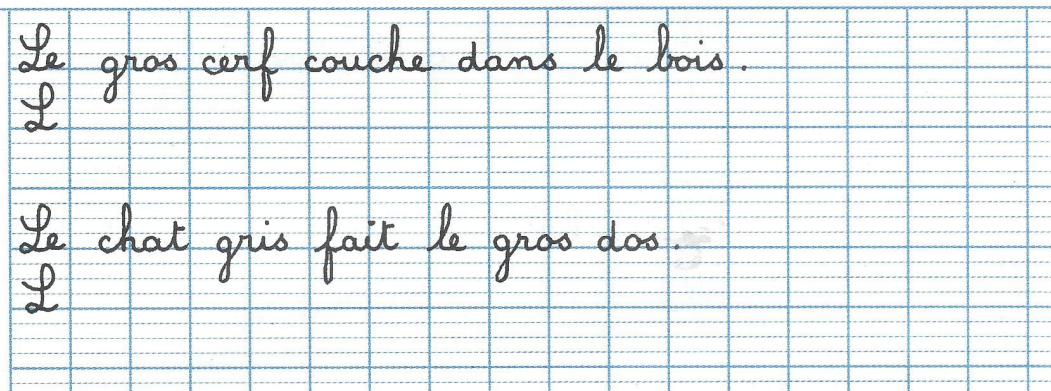 Le gros cerf couche dans le bois.
L
Le chat gris fait le gros dos.
L